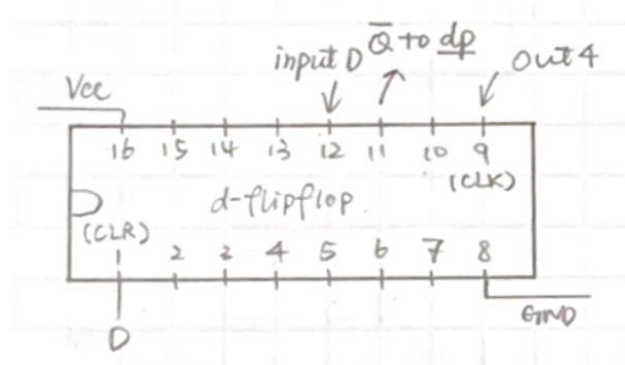 input D Q̅ to dp out 4
Vcc
16 15 14 13 12 11 10 9
(CLK)
d-flipflop.
(CLR)
1 2 3 4 5 6 7 8
GND
D